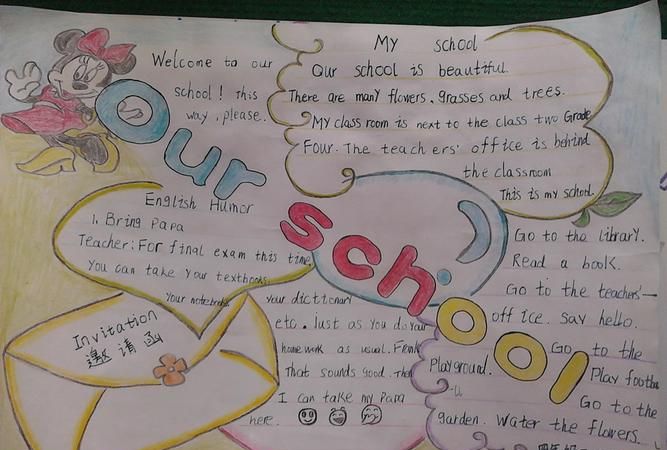 Welcome to our
school! This
way, please.
My school
Our school is beautiful.
There are many flowers, grasses and trees.
My class room is next to the class two Grade
Four. The teach ers' office is behind
the classroom
This is my school.
Our school
English Humor
1. Bring Papa
Teacher: For final exam this time,
you can take your textbooks,
your notebooks,
your dictionary
etc. Just as you do your
home work as usual. Frank
That sounds good. Then
I can take my Papa
here.
Invitation
邀请函
Go to the library.
Read a book.
Go to the teachers'—
off ice. Say hello.
Go to the
Playground.
Play footba
Go to the
garden. Water the flowers.